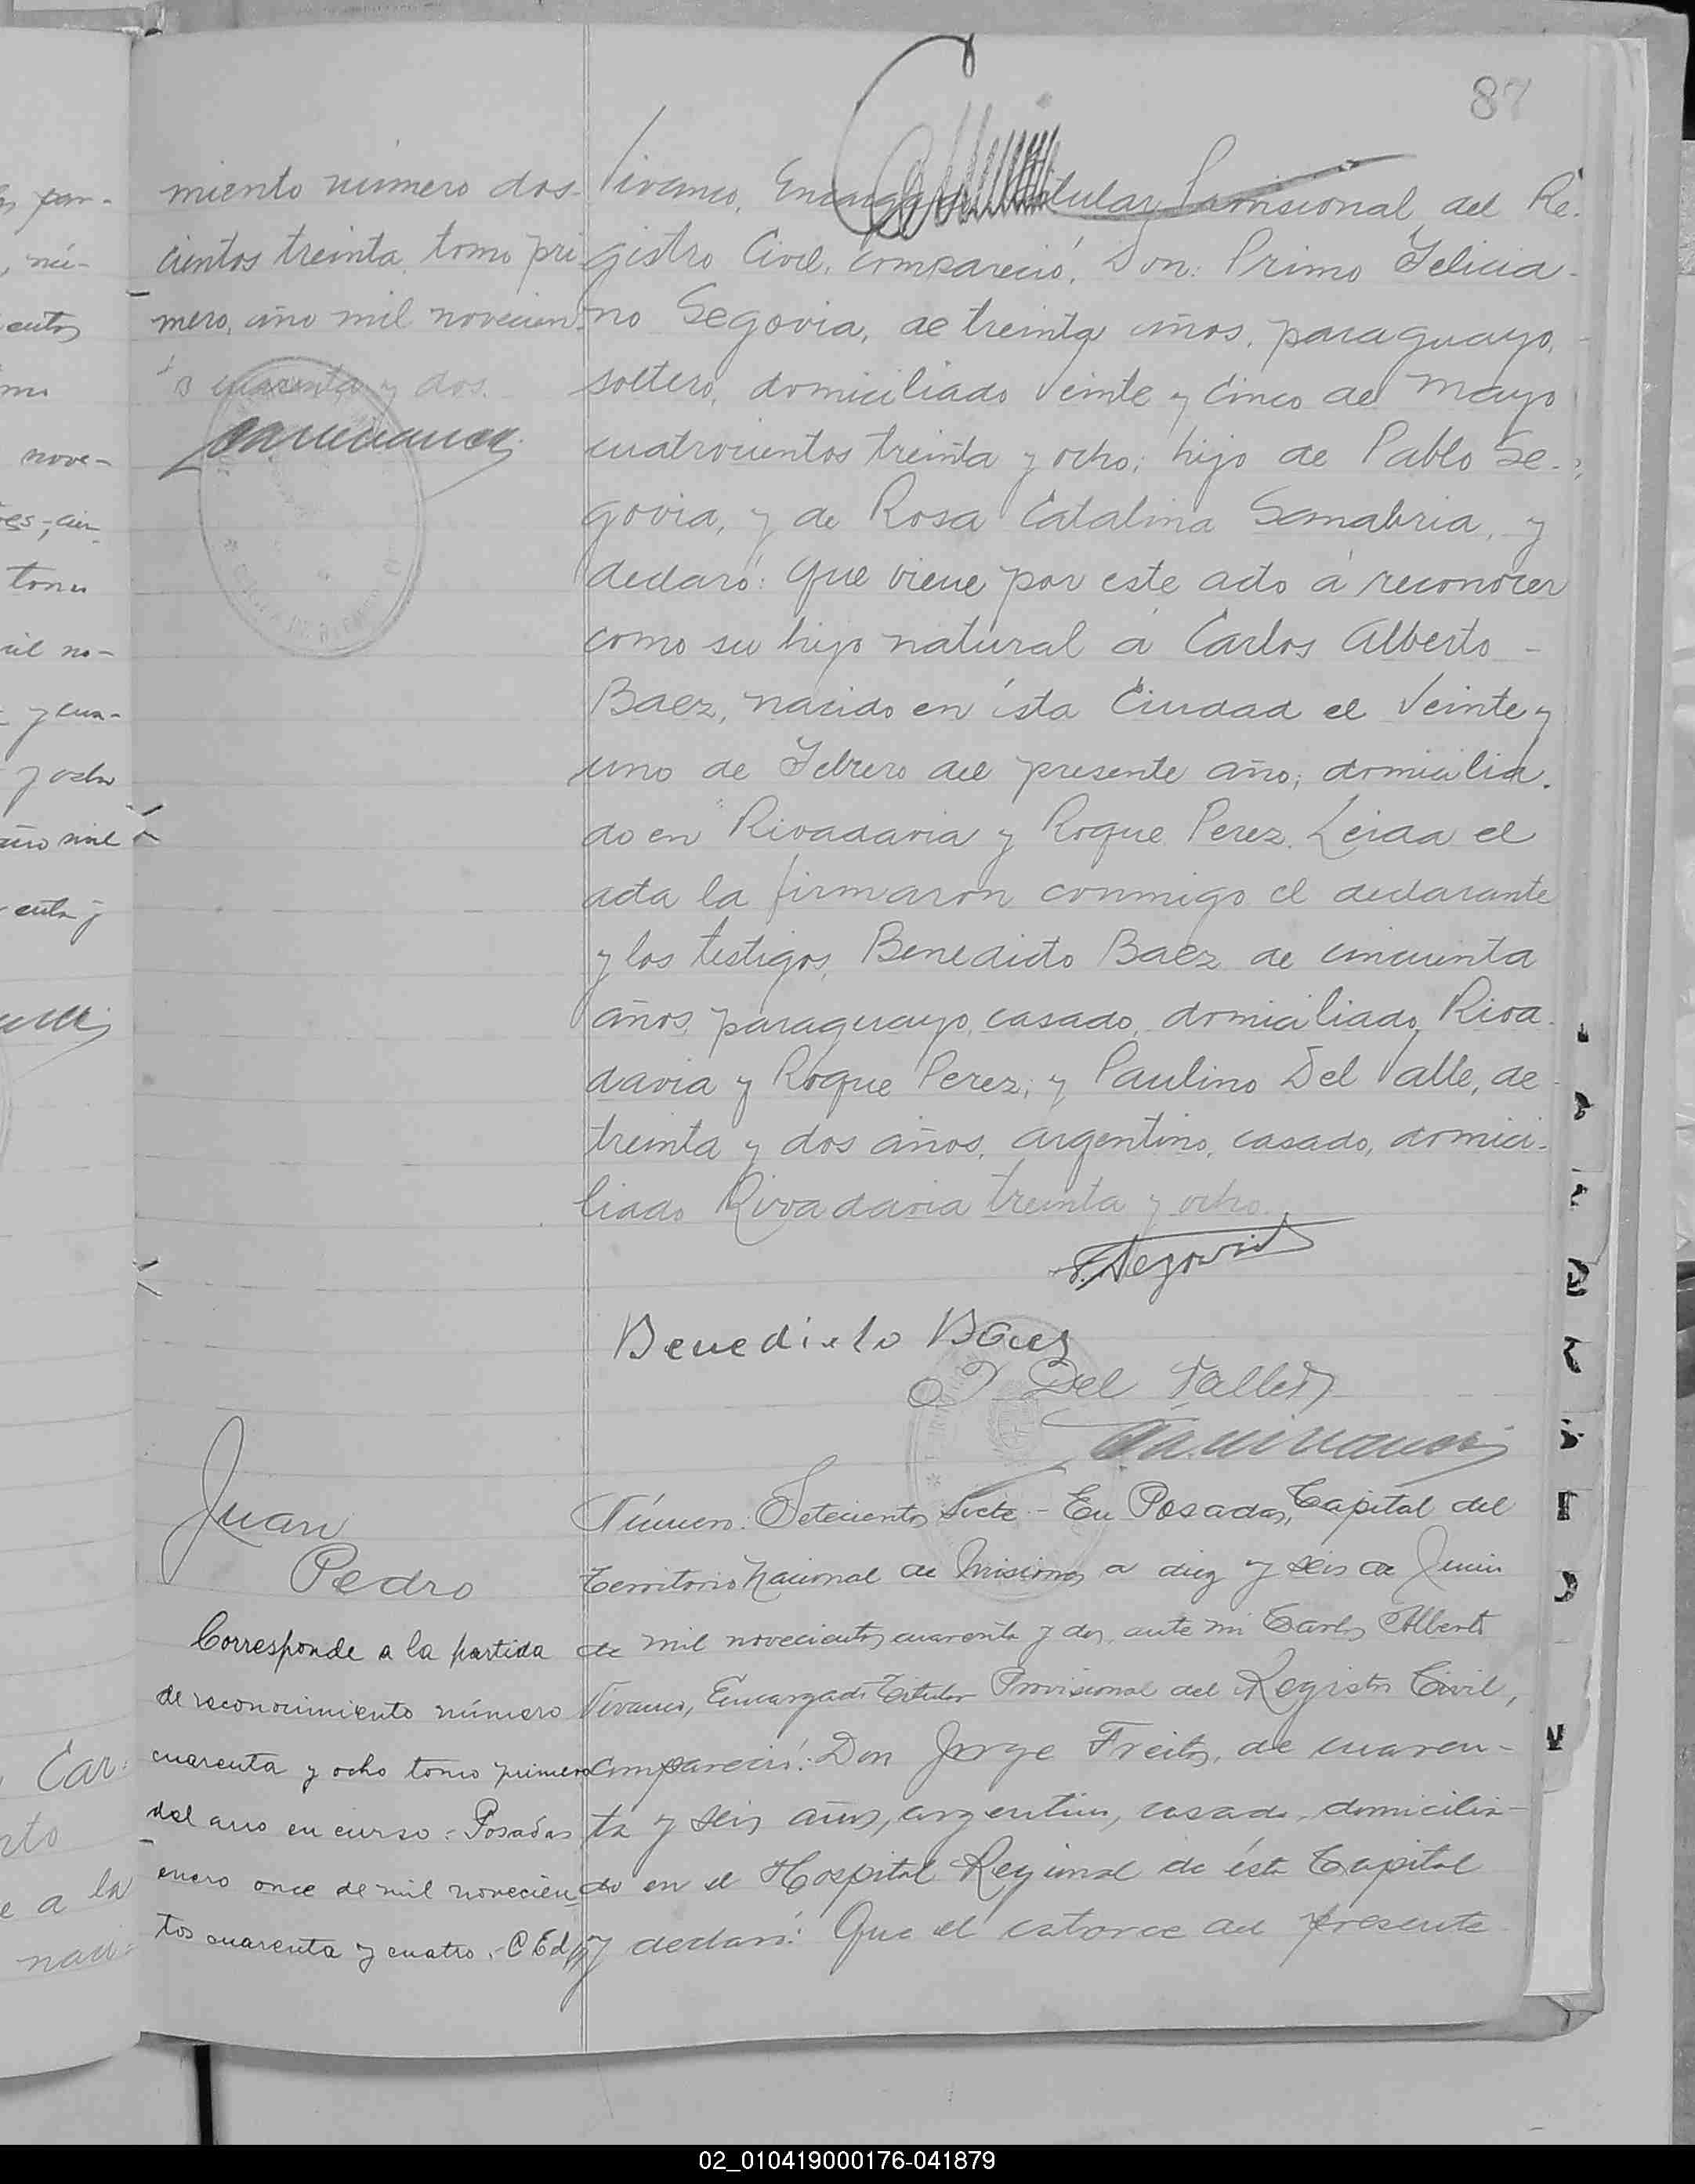 87
miento número dos-
cientos treinta, tomo pri
mero, año mil novecien-
s cuarenta y dos.
Vivanco, Encargado Titular Provisional del Re-
gistro Civil, compareció: Don: Primo Felicia-
no Segovia, de treinta años, paraguayo,
soltero, domiciliado Veinte y Cinco de Mayo
cuatrocientos treinta y ocho; hijo de Pablo Se-
govia, y de Rosa Catalina Sanabria, y
declaró: Que viene por este acto á reconocer
como su hijo natural á Carlos Alberto -
Baez, nacido en ésta Ciudad el Veinte y
uno de Febrero del presente año; domicilia-
do en Rivadavia y Roque Perez. Leida el
acta la firmaron conmigo el declarante
y los testigos, Benedicto Baez de cincuenta
años, paraguayo, casado, domiciliado, Riva-
davia y Roque Perez; y Paulino Del Valle, de
treinta y dos años, argentino, casado, domici-
liado Rivadavia treinta y ocho.
F. Segovia
Benedicto Baez
P Del Valle
Juan
Pedro
Corresponde a la partida
de reconocimiento número
cuarenta y ocho tomo primero
del ano en curso.- Posadas
enero once de mil novecien-
tos cuarenta y cuatro.-
Número: Setecientos Siete - En Posadas, Capital del
Territorio Nacional de Misiones a diez y seis de Junio
de mil novecientos cuarenta y dos, ante mi Carlos Alberto
Vivanco, Encargado Titular Provisional del Registro Civil,
compareció: Don Jorge Freito, de cuaren-
ta y seis años, argentino, casado, domicilia-
do en el Hospital Regional de ésta Capital
y declaró: Que el catorce del presente
nú-
entos
nove-
tomo
mil no-
y cua-
y ocho
año mil
Car-
e a la
02_010419000176-041879